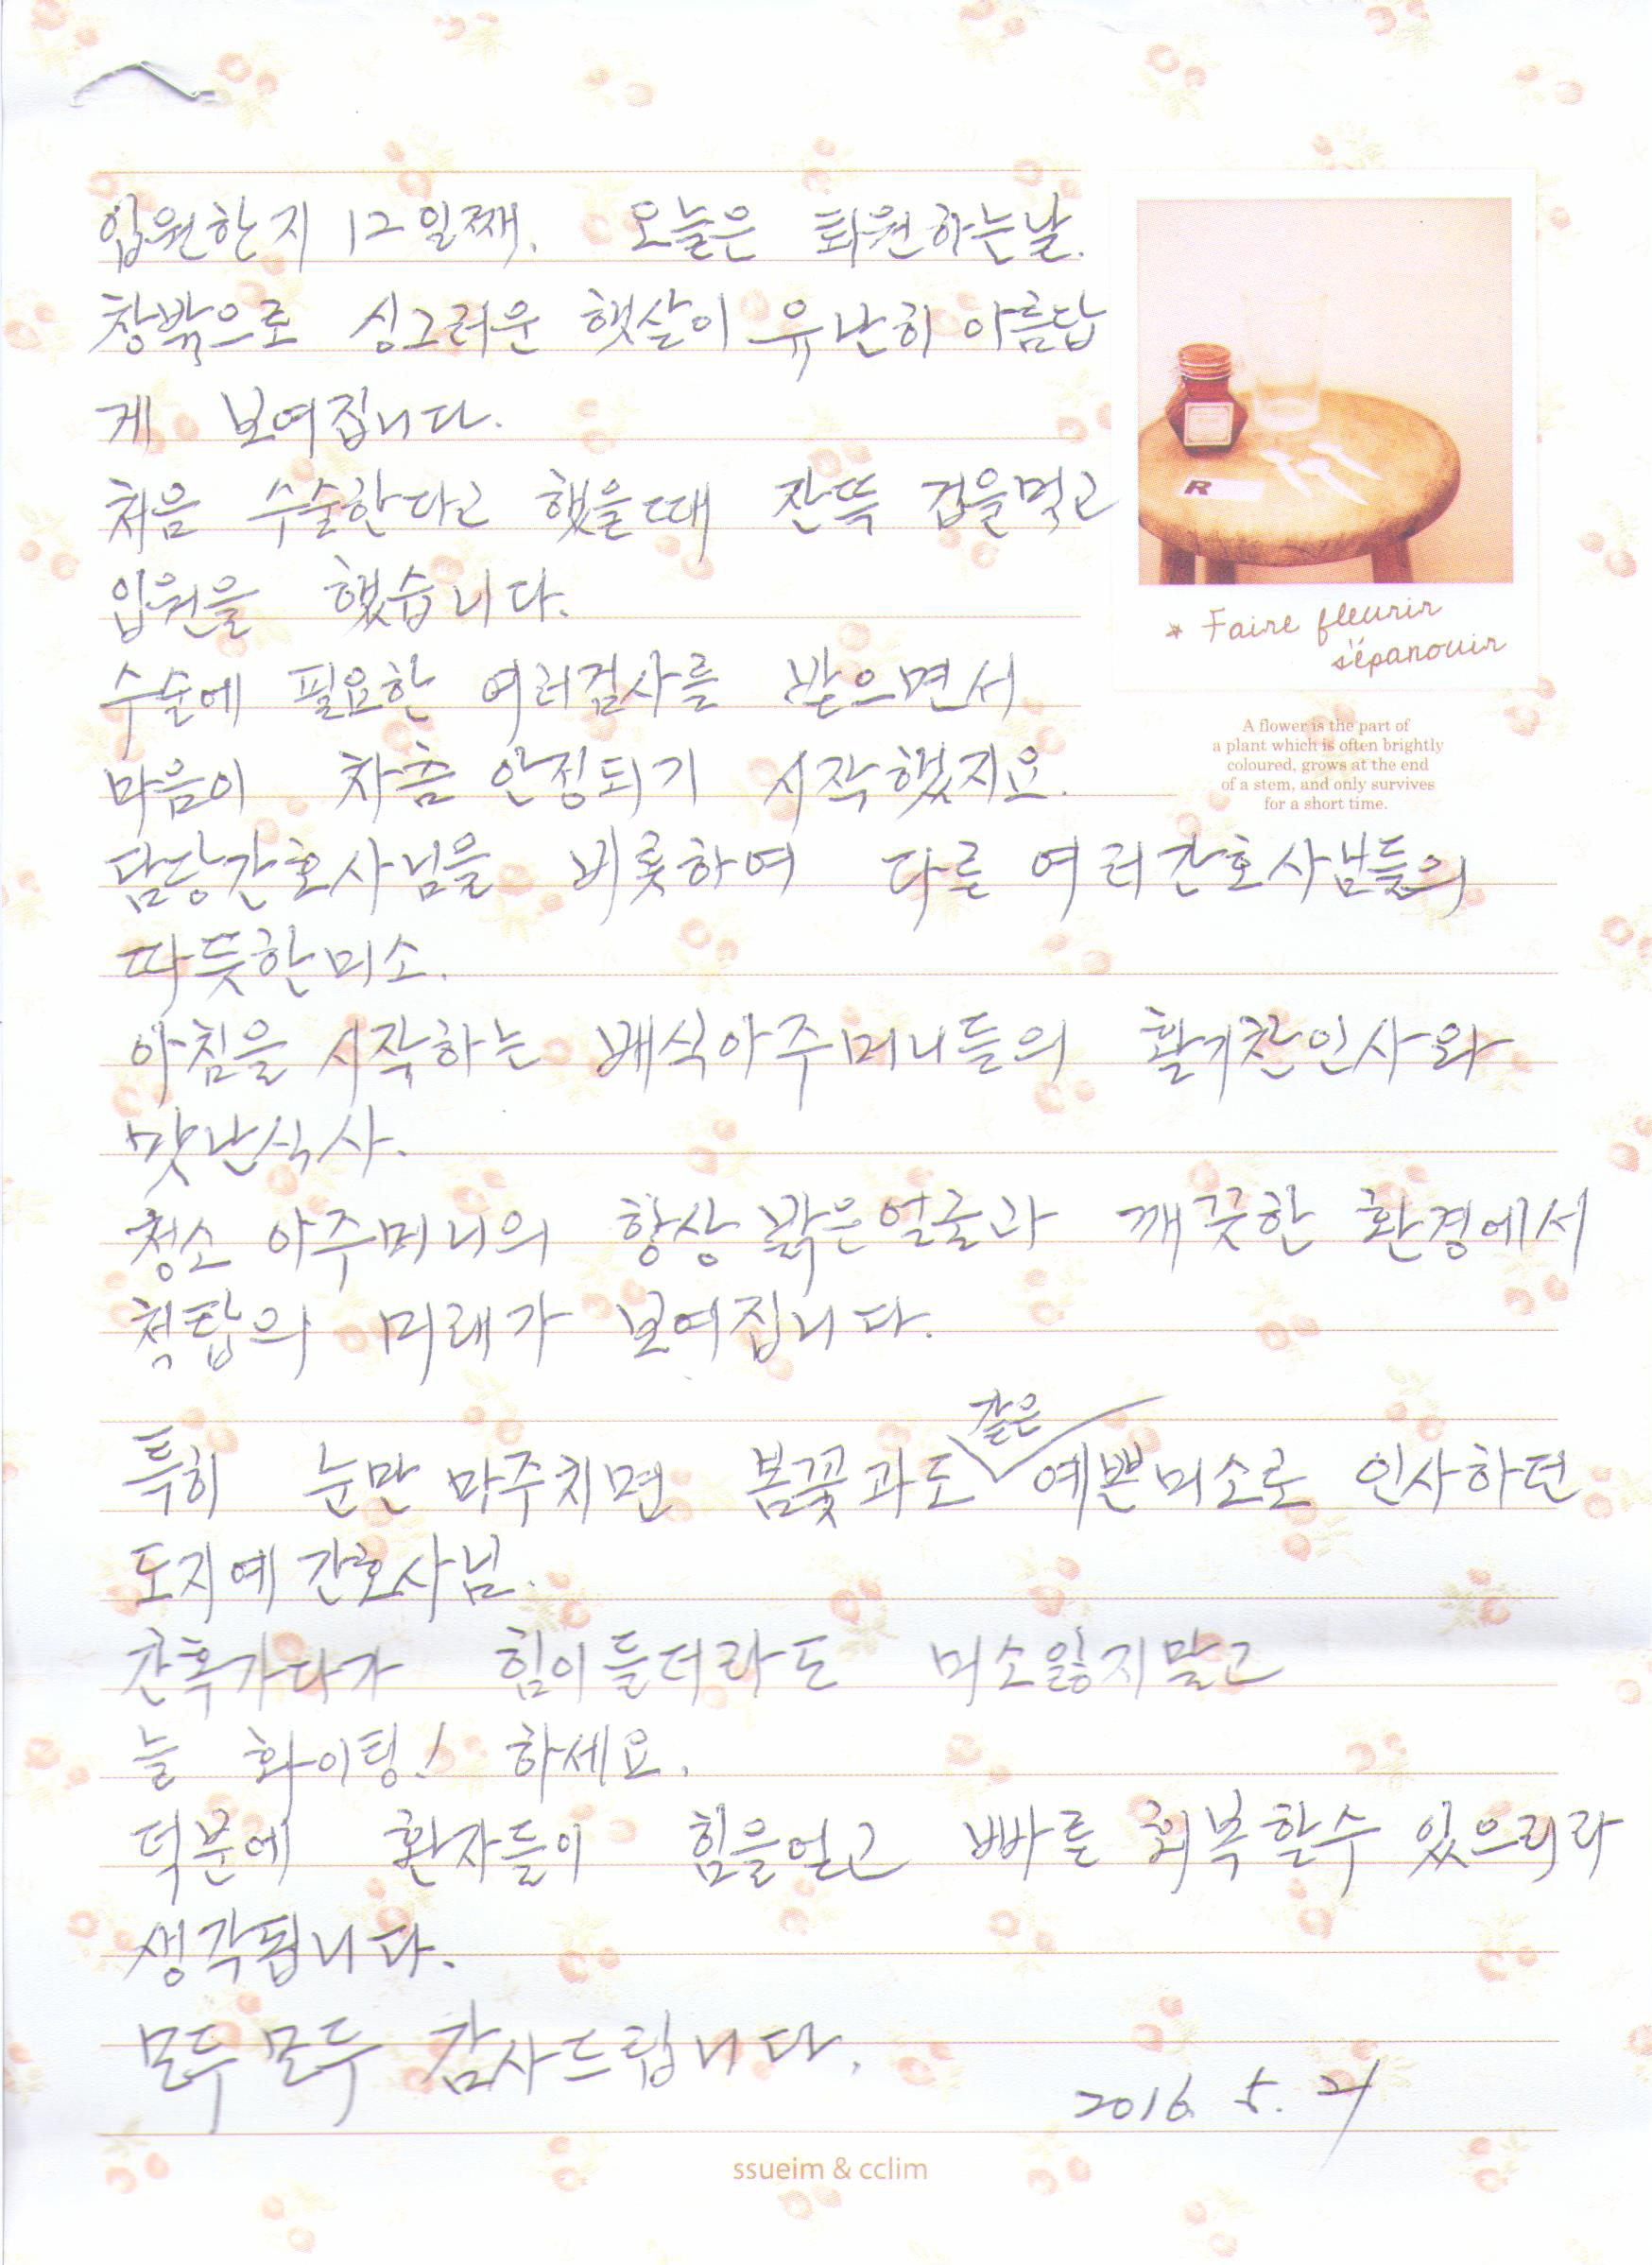 입원한지 12일째. 오늘은 퇴원하는날.
창밖으로 싱그러운 햇살이 유난히 아름답
게 보여집니다.
처음 수술한다고 했을때 잔뜩 겁을먹고
입원을 했습니다.
수술에 필요한 여러검사를 받으면서
마음이 차츰 안정되기 시작했지요.
담당간호사님을 비롯하여 다른 여러간호사님들의
따듯한미소.
아침을 시작하는 배식아주머니들의 활기찬인사와
맛난식사.
청소 아주머니의 항상 밝은얼굴과 깨끗한 환경에서
척탑의 미래가 보여집니다.
특히 눈만 마주치면 봄꽃과도 같은 예쁜미소로 인사하던
도지예 간호사님.
간혹가다가 힘이들더라도 미소잃지말고
늘 화이팅! 하세요.
덕분에 환자들이 힘을얻고 빠른 회복할수 있으리라
생각됩니다.
모두 모두 감사드립니다.
2016. 5. 4
R
* Faire fleurir
s'épanouir
A flower is the part of
a plant which is often brightly
coloured, grows at the end
of a stem, and only survives
for a short time.
ssueim & cclim